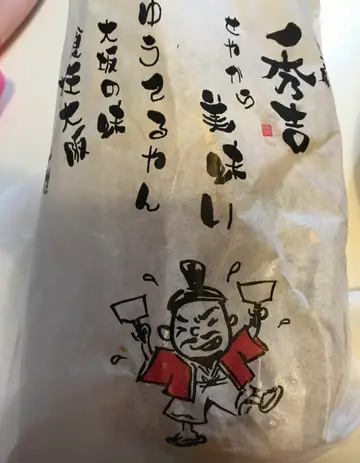 一秀吉
せやから美味い
ゆうてるやん
大坂の味
大阪